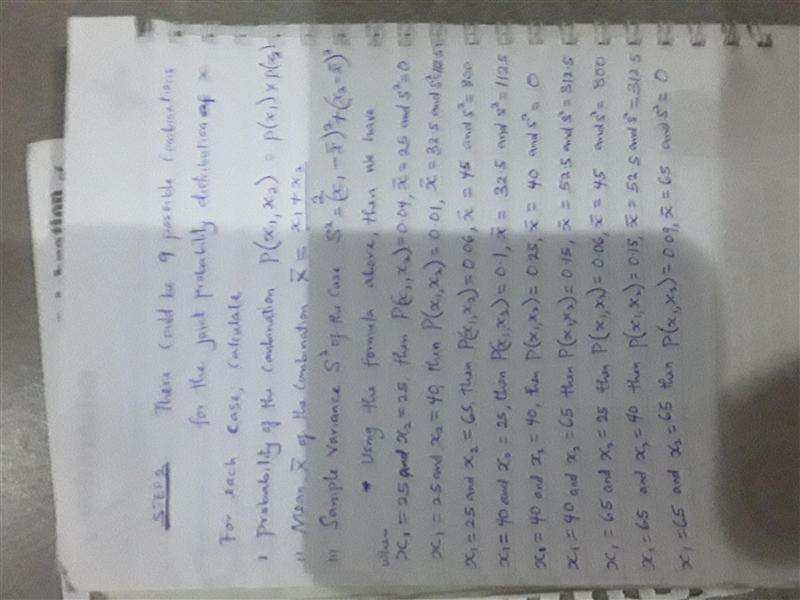 STEP 2 There could be 9 possible combinations
for the joint probability distribution of x
For each case, calculate
i Probability of the combination P(x₁, x₂) = P(x₁) × P(x₂)
ii Mean x̄ of the combination x̄ = x₁ + x₂ / 2
iii Sample variance S² of the case S² = (x₁ - x̄)² + (x₂ - x̄)²
* Using the formula above, then we have
when
x₁ = 25 and x₂ = 25, then P(x₁, x₂) = 0.04, x̄ = 25 and S² = 0
x₁ = 25 and x₂ = 40, then P(x₁, x₂) = 0.01, x̄ = 32.5 and S² = 112.5
x₁ = 25 and x₂ = 65, then P(x₁, x₂) = 0.06, x̄ = 45 and S² = 800
x₁ = 40 and x₂ = 25, then P(x₁, x₂) = 0.1, x̄ = 32.5 and S² = 112.5
x₁ = 40 and x₂ = 40, then P(x₁, x₂) = 0.25, x̄ = 40 and S² = 0
x₁ = 40 and x₂ = 65 then P(x₁, x₂) = 0.15, x̄ = 52.5 and S² = 312.5
x₁ = 65 and x₂ = 25 then P(x₁, x₂) = 0.06, x̄ = 45 and S² = 800
x₁ = 65 and x₂ = 40 then P(x₁, x₂) = 0.15, x̄ = 52.5 and S² = 312.5
x₁ = 65 and x₂ = 65 then P(x₁, x₂) = 0.09, x̄ = 65 and S² = 0